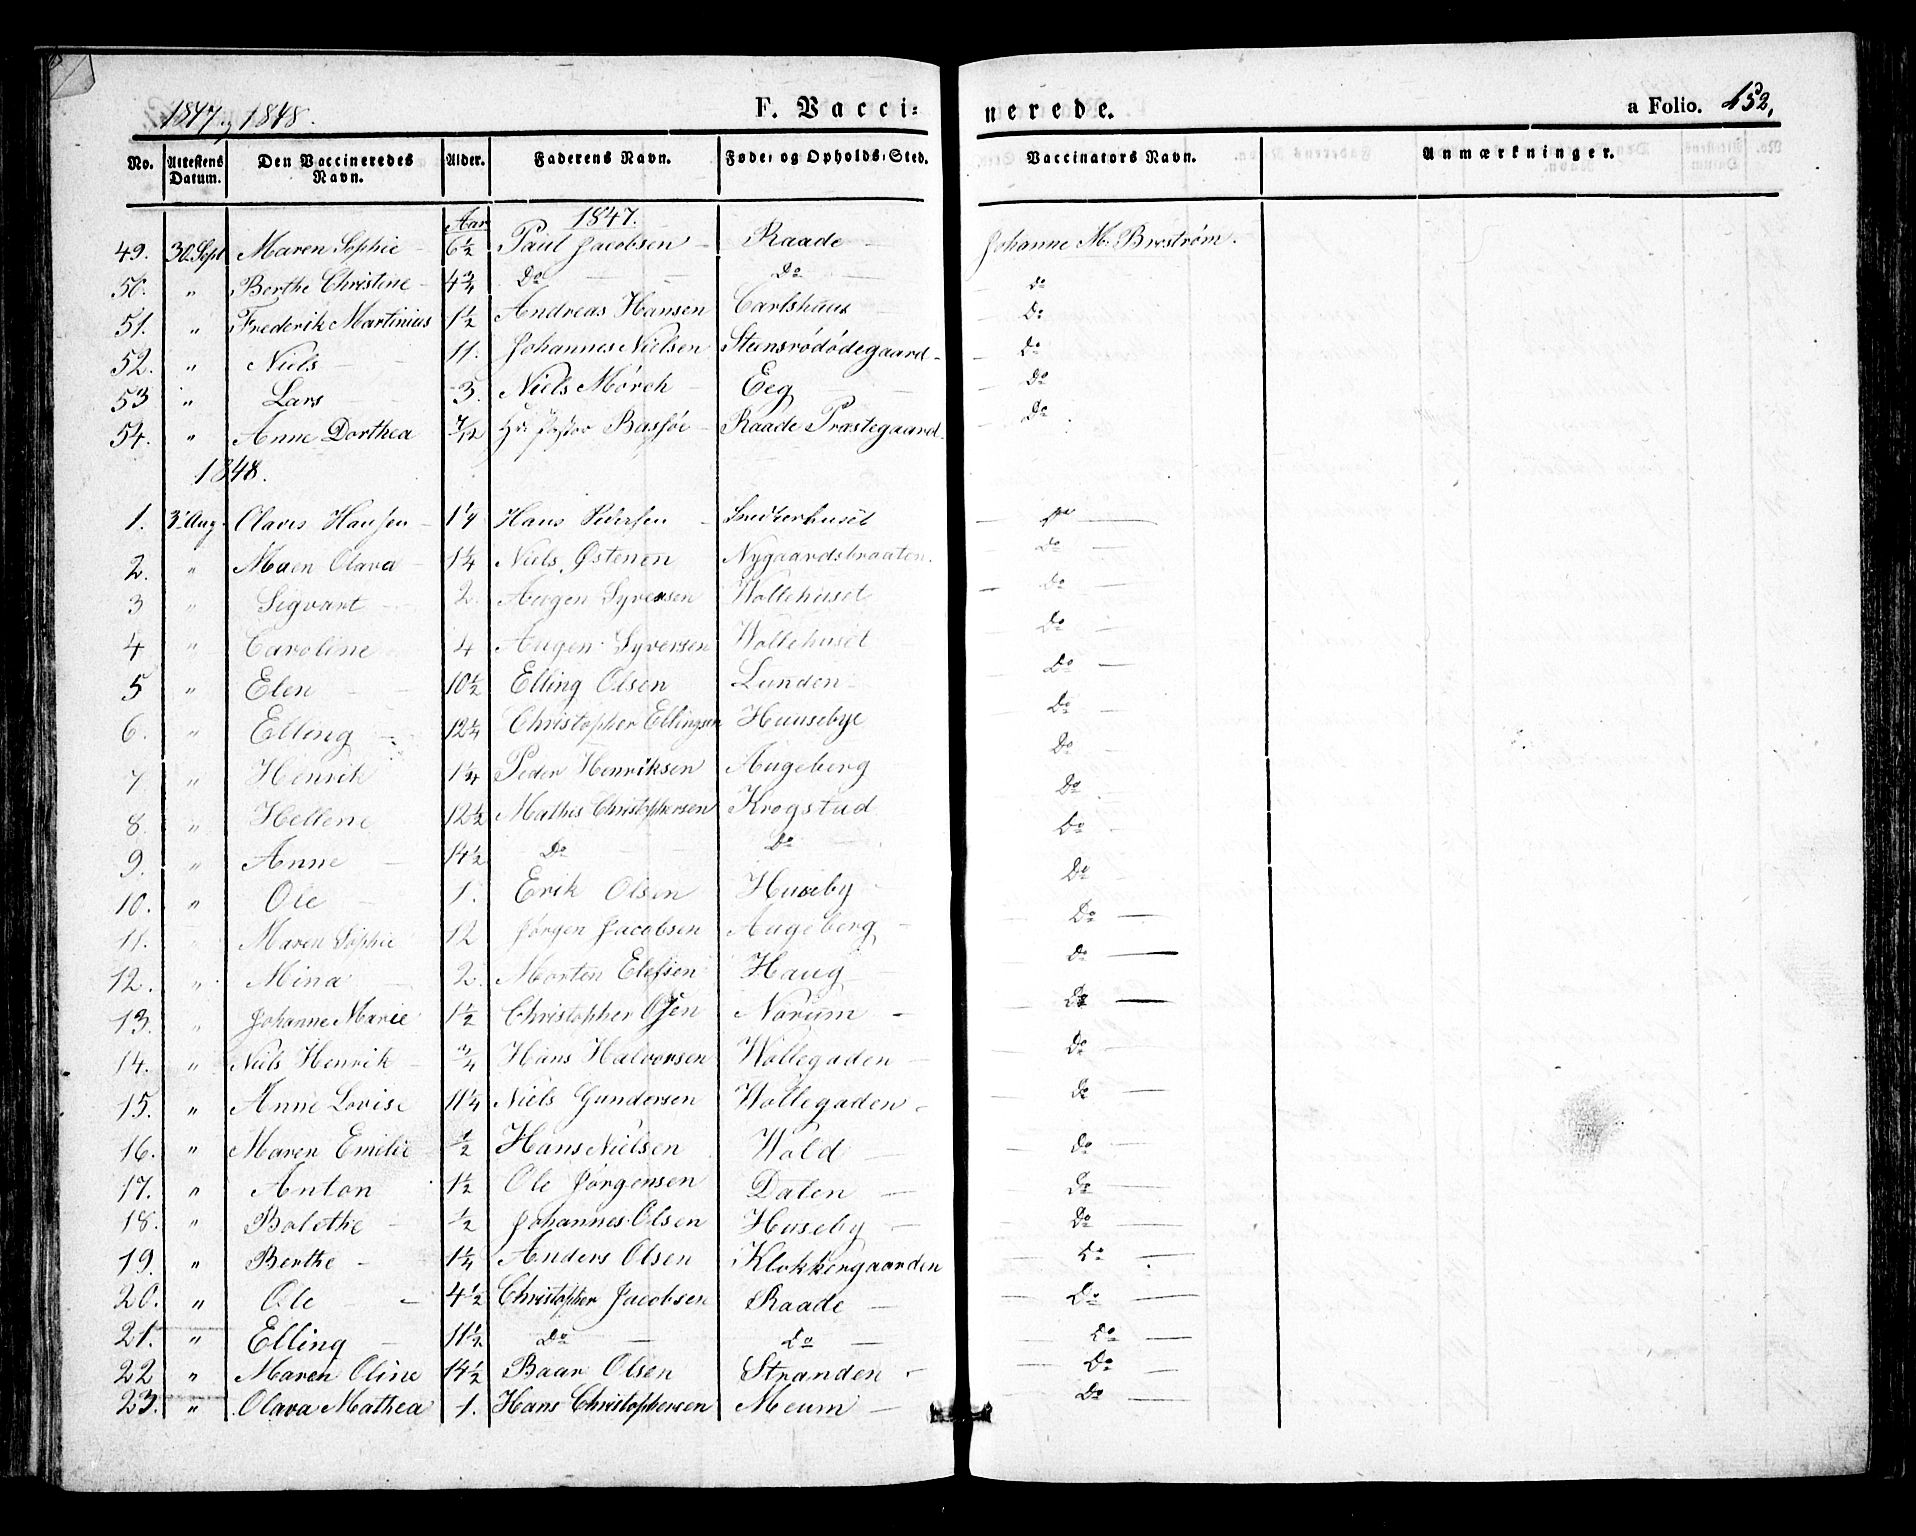 1847 og 1848. F. Vacci- nerede. a Folio. 152,
No. Attestens Datum. Den Vaccineredes Navn. Alder. Faderens Navn. Føde- og Opholds-Sted. Vaccinators Navn. Anmærkninger.
Aar 1847.
49. 30 Sept Maren Sophie - 6½ Paul Jacobsen - Raade - Johanne M. Broström.
50. " Berthe Christine - 4¾ Do - Do - Do
51. " Frederik Martinius 1½ Andreas Hansen Carlshuus - Do
52. " Niels - 11. Johannes Nielsen Steensrödödegaard - Do
53 " Lars - 3. Niels Mörch - Eeg - Do
54. " Anne Dorthea 7/12 Hr. Pastor Bassöe - Raade Præstegaard - Do
1848.
1. 3 Aug. Olaves Hansen - 1¼ Hans Pedersen - Snedkerhuset - Do
2. " Maen Olava - 1¼ Niels Østenen Nygaardstraaten. - Do
3 " Sigvart - 2. Augen Syversen Woltehuset - Do
4 " Caroline 4 Augen Syversen Woltehuset - Do
5 " Elen - 10½ Elling Olsen Lunden - Do
6. " Elling - 12¼ Christopher Ellingsen Huusebye Do
7 " Henrik 1¼ Peder Henriksen Augeberg Do
8. " Hellene 12½ Mathis Christophersen Krogstad Do
9. " Anne - 14½ Do - Do Do
10. " Ole - 1. Erik Olsen Huseby Do
11. " Maren Sophie 12 Jörgen Jacobsen Augeberg - Do
12. " Mina - 2. Morten Elefsen Haug - Do
13. " Johanne Marie 1½ Christopher Olsen Norum - Do
14. " Niels Henrik - ¾ Hans Halvorsen Woltegaden - Do
15. " Anne Lovise 11¼ Niels Gundersen Woltegaden - Do
16. " Maren Emilie ½ Hans Nielsen Wold - Do
17. " Anton 1½ Ole Jörgensen Dalen - Do
18. " Bolethe - ½ Johannes Olsen Huseby - Do
19. " Berthe - 1¼ Anders Olsen Klokkergaarden Do
20. " Ole - 4½ Christopher Jacobsen Raade - Do
21. " Elling - 11½ Do - Do - Do
22 " Maren Oline 14½ Baar Olsen Stranden - Do
23. " Olava Mathea 1. Hans Christophersen Meum - Do